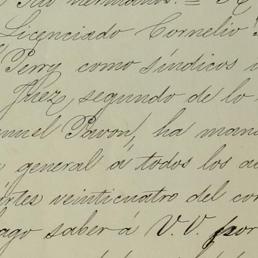 hermanos. =
Licenciado Cornelio
Perry como síndicos
Juez, segundo de lo
nuel Pavon/, ha man
general á todos los ac
artes veinticuatro del cor
ago saber á V.V. por